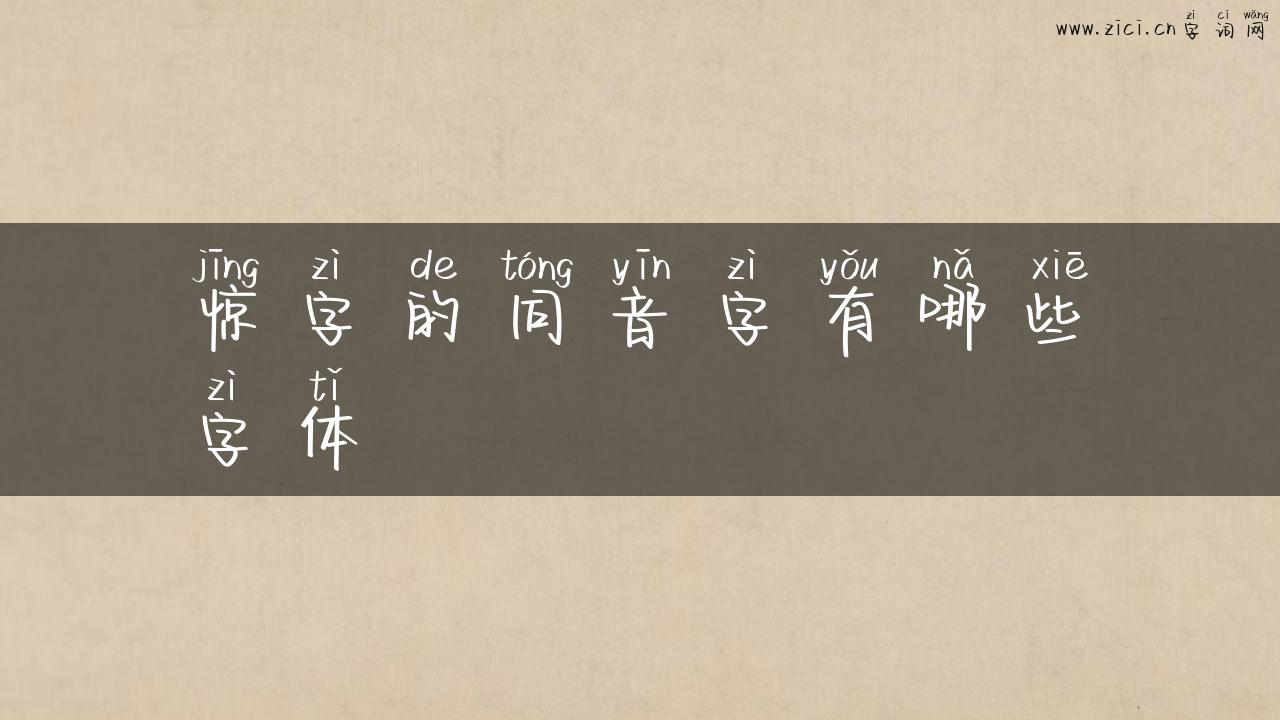 zì cí wǎng
www.zici.cn 字词网
jīng zì de tóng yīn zì yǒu nǎ xiē
惊字的同音字有哪些
zì tǐ
字体